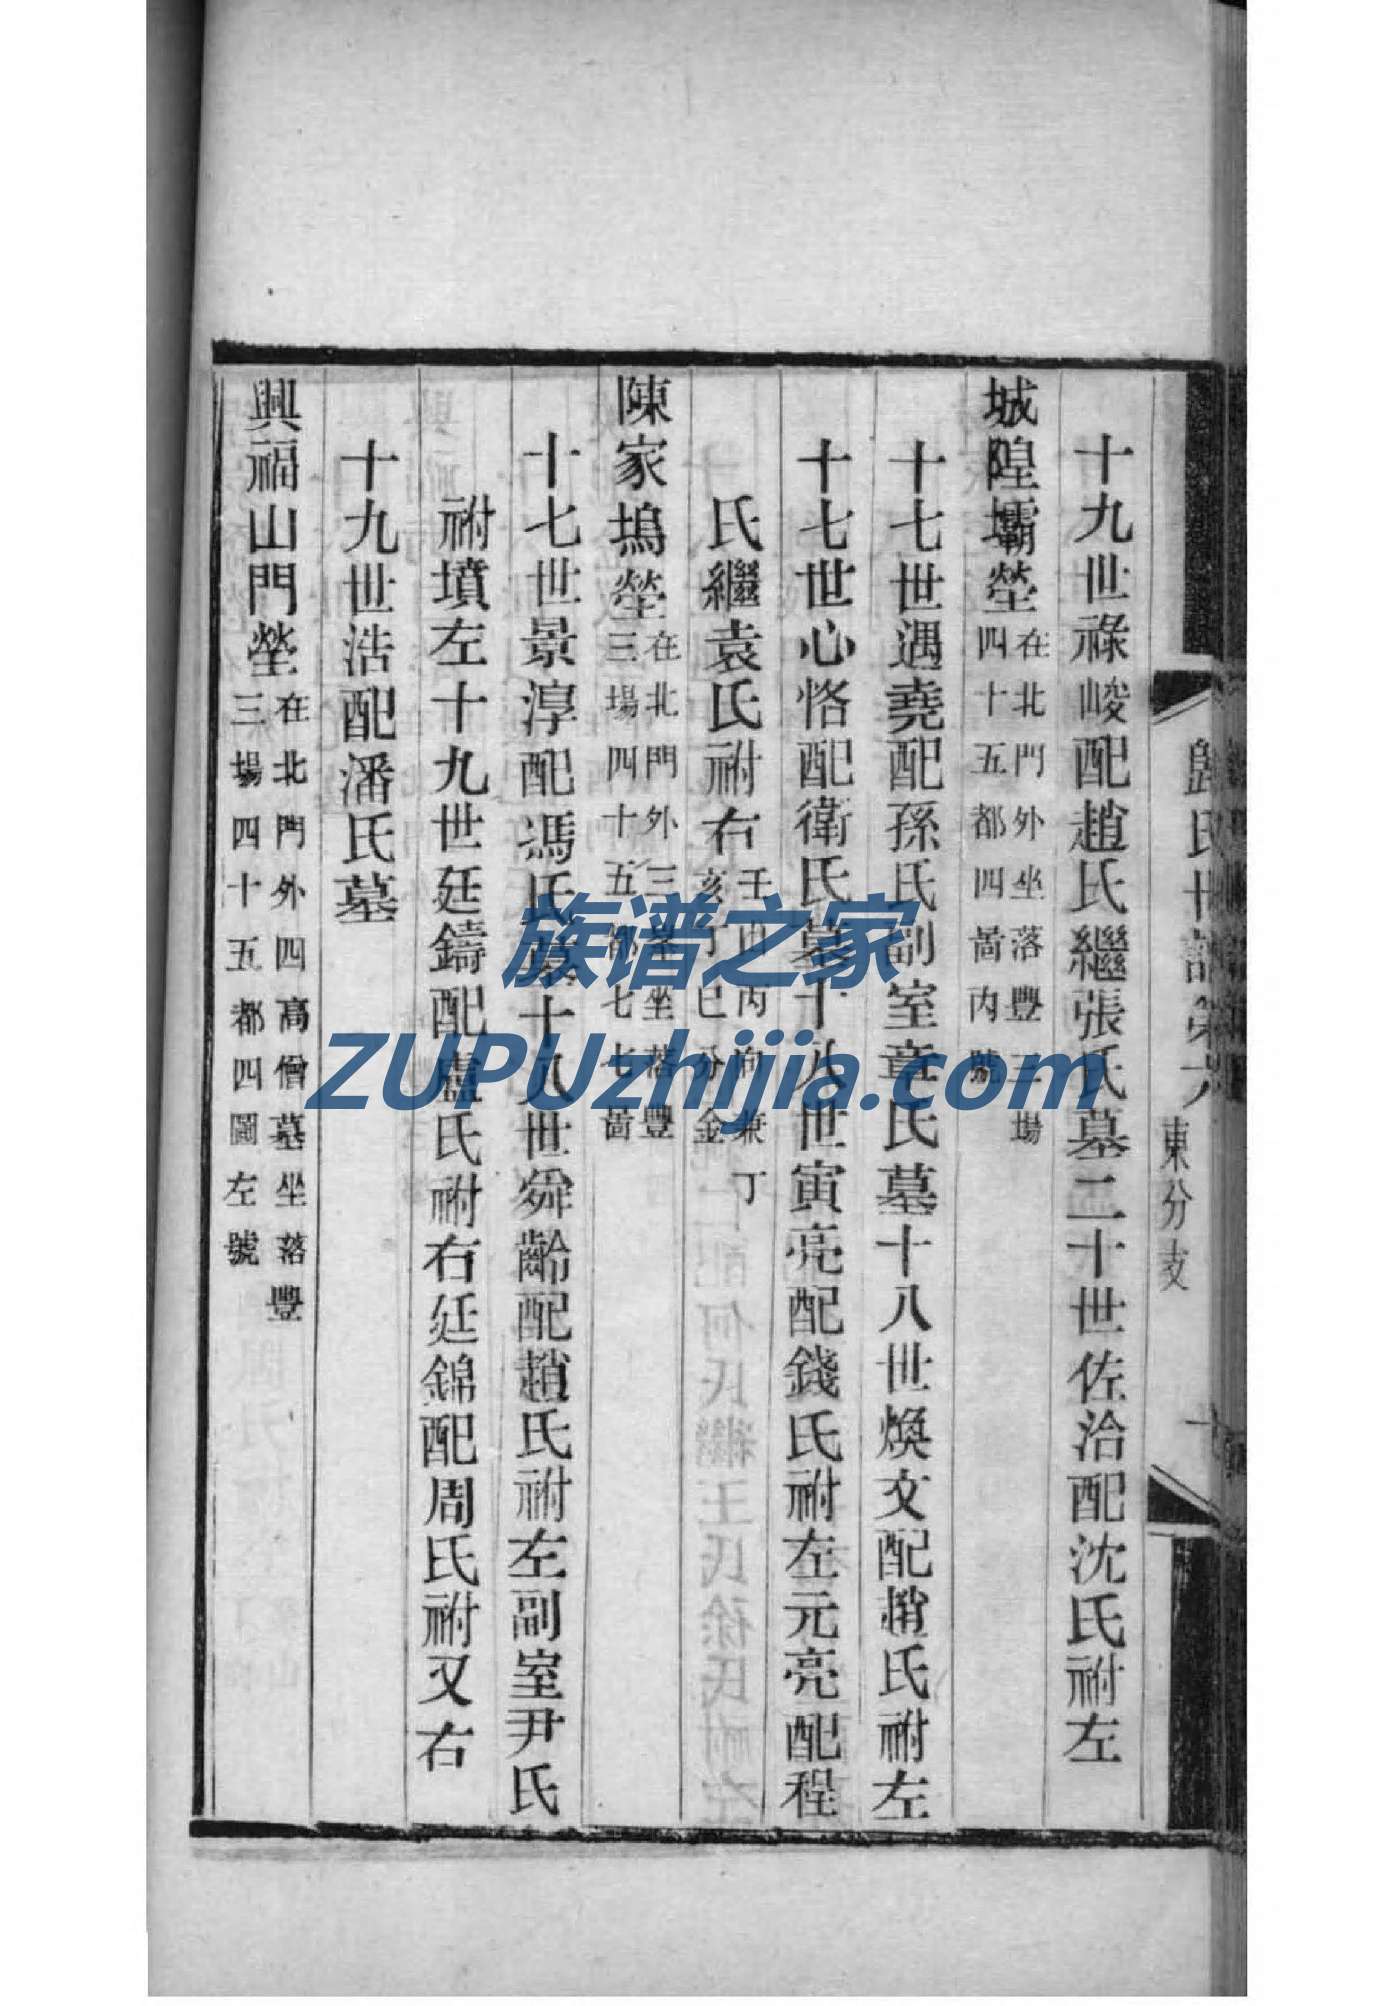 十九世祿峻配趙氏繼張氏墓二十世佐治配沈氏祔左
城隍壩塋在北門外坐落豐三場
四十五都四啚内號
十七世遇堯配孫氏副室章氏墓十八世煥文配趙氏祔左
十七世心恪配衛氏墓十八世寅亮配錢氏祔左元亮配程
氏繼袁氏祔右壬山丙向兼丁
亥丁巳分金
陳家塢塋在北門外三峯坐落豐
三場四十五都七七啚
十七世景淳配馮氏墓十八世舜齡配趙氏祔左副室尹氏
祔墳左十九世廷鑄配盧氏祔右廷錦配周氏祔又右
十九世浩配潘氏墓
興福山門塋在北門外四高僧墓坐落豐
三場四十五都四圖左號
東分支
族谱之家
ZUPUzhijia.com